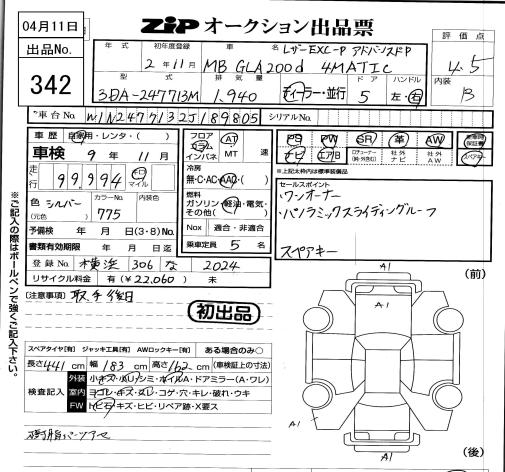 04月11日
ZIP オークション出品票
出品No.
342
年式
初年度登録
車名
ドア
ハンドル
評価点
2年11月
レザーEXC-P アドバンスドP
MB GLA200d 4MATIC
4.5
型式
排気量
内装
3DA-247713M
1,940
ディーラー・並行
5
左・右
B
車台No.
W1N2477132J189805
シリアルNo.
車歴
自家用・レンタ・( )
車検 9年 11月
走行
99,994
キロ
マイル
色 シルバー
(元色)
カラーNo.
775
内装色
予備検 年 月 日(3・8)No.
書類有効期限 年 月 日迄
登録No. 横浜 306 な 2024
リサイクル料金 有(¥22,060) 未
フロア
コラム
インパネ
AT
MT
速
冷房
無・C・AC・AAC・( )
燃料
ガソリン・軽油・電気・
その他( )
Nox 適合・非適合
乗車定員 5 名
PS PW SR 革 AW
ナビ エアB
社外ナビ
社外AW
保証書
スペアキー
※上記太枠内は標準装備品
セールスポイント
・ワンオーナー
・パノラミックスライディングルーフ
スペアキー
(注意事項) 取手後日
初出品
スペアタイヤ[有] ジャッキ工具[有] AWロックキー[有] ある場合のみ○
長さ441cm 幅183cm 高さ162cm (車検証上の寸法)
検査記入
外装 小キズ・ハリ・シミ・ホイルA・ドアミラー(A・ワレ)
室内 ヨゴレ・キズ・スレ・コゲ・穴・キレ・破れ・ウキ
FW トビ石・キズ・ヒビ・リペア跡・X要ス
樹脂パーツアセ
A1
(前)
A1
A1
A1
(後)
※ご記入の際はボールペンで強くご記入下さい。